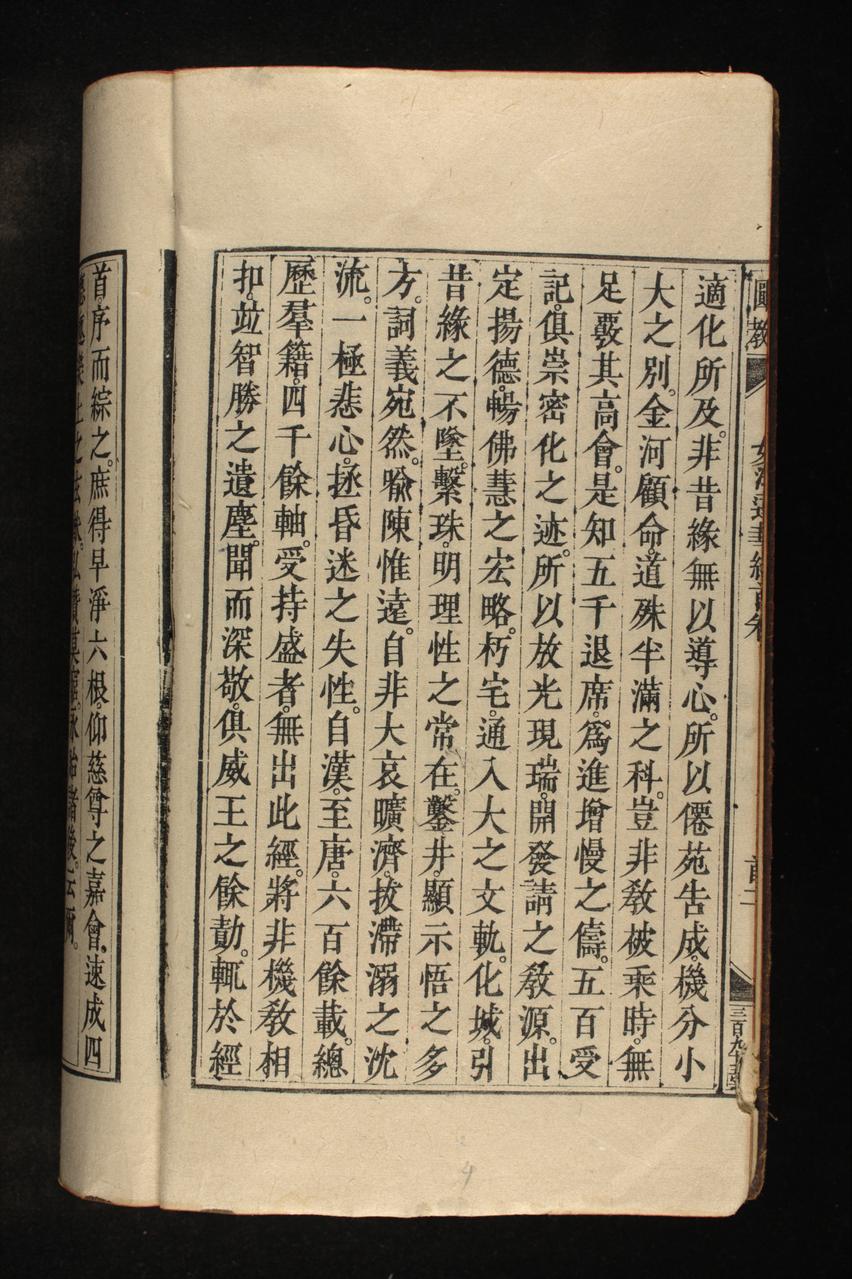 適化所及。非昔緣無以導心。所以僊苑告成。機分小
大之別。金河顧命。道殊半滿之科。豈非教被乘時。無
足覈其高會。是知五千退席。爲進增慢之儔。五百受
記。俱崇密化之迹。所以放光現瑞。開發請之教源。出
定揚德。暢佛慧之宏略。朽宅。通入大之文軌。化城。引
昔緣之不墜。繫珠。明理性之常在。鑿井。顯示悟之多
方。詞義宛然。喻陳惟遠。自非大哀曠濟。拔滯溺之沈
流。一極悲心。拯昏迷之失性。自漢。至唐。六百餘載。總
歷羣籍。四千餘軸。受持盛者。無出此經。將非機教相
扣。竝智勝之遺塵。聞而深敬。俱威王之餘勣。輒於經
首。序而綜之。庶得早淨六根。仰慈尊之嘉會、速成四